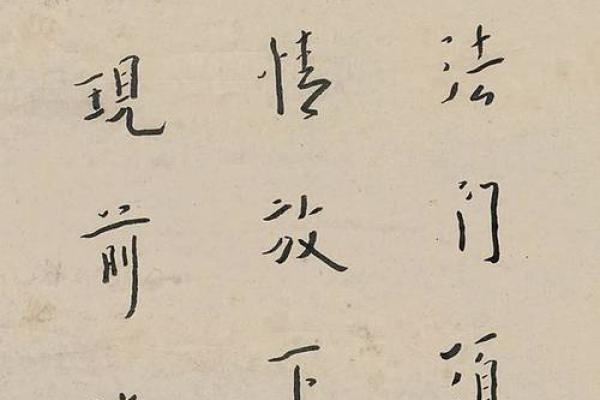 法门须
情放下
現前